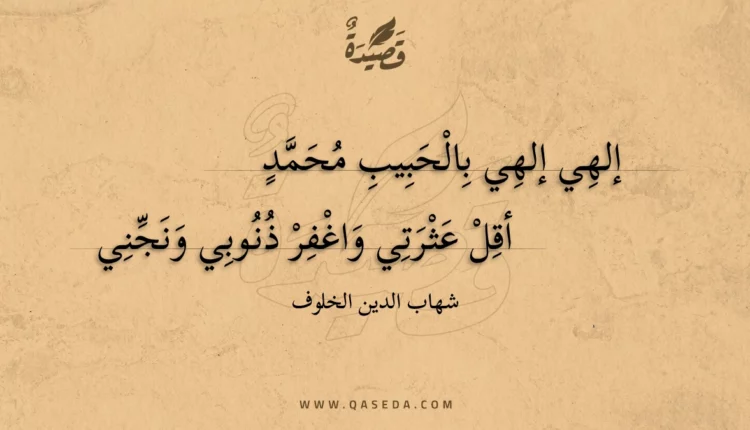 قَصِيْدَةٌ
إلهِي إلهِي بِالْحَبِيبِ مُحَمَّدٍ
أقِلْ عَثْرَتِي وَاغْفِرْ ذُنُوبِي وَنَجِّنِي
شهاب الدين الخلوف
WWW.QASEDA.COM